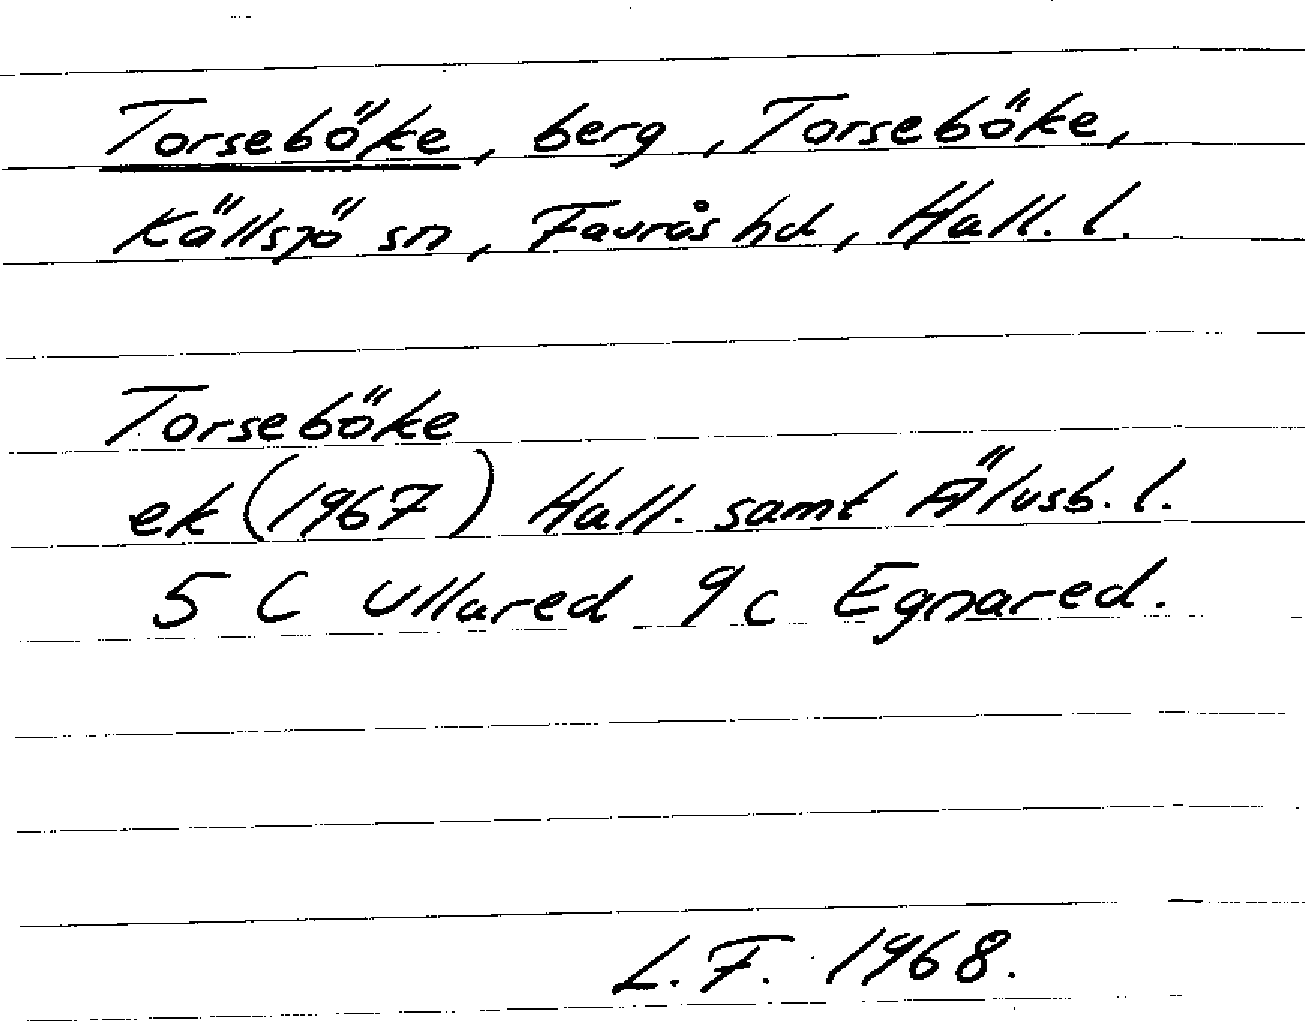 Torseböke, berg, Torseböke,
Källsjö sn, Faurås hd, Hall. l.
Torseböke
ek (1967) Hall. samt Älvsb. l.
5 C Ullared 9c Egnared.
L.F. 1968.